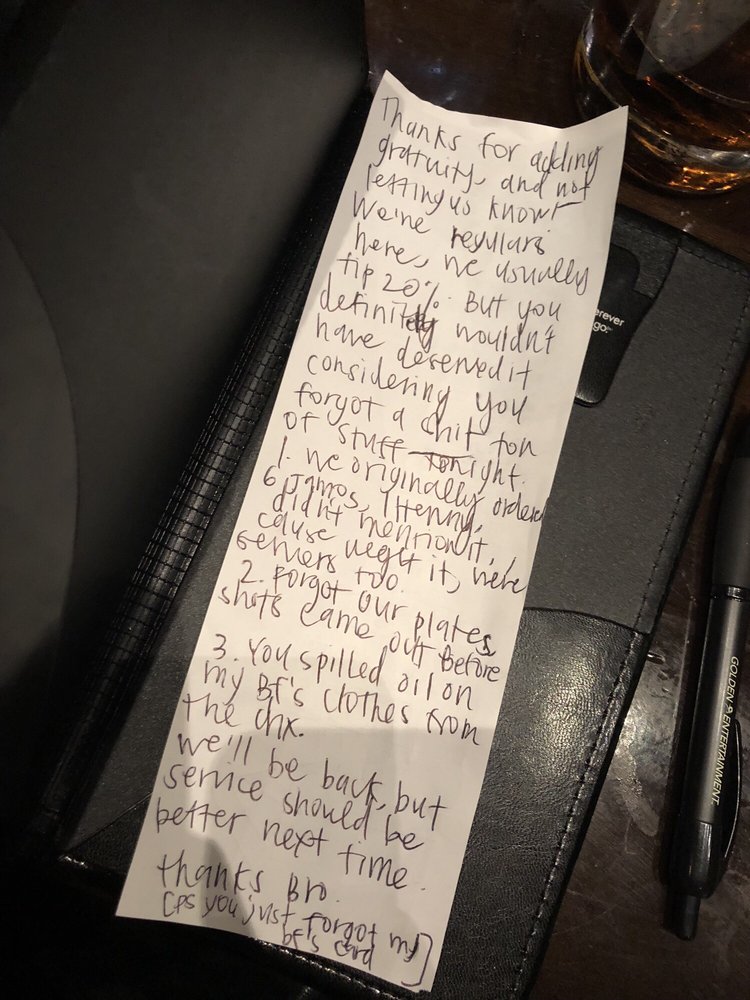 Thanks for adding
gratuity, and not
letting us know!
We're regulars
here, we usually
tip 20%. But you
definitely wouldn't
have deserved it
considering you
forgot a shit ton
of stuff tonight.
1. we originally ordered
6 Jamos, 1 Henny,
didn't mention it,
cause we get it, we're
servers too.
2. Forgot our plates,
shots came out before
3. You spilled oil on
my BF's clothes from
the chx.
we'll be back, but
service should be
better next time.
thanks Bro.
[ps you just forgot my
bf's card]
erever
go.
GOLDEN ENTERTAINMENT.